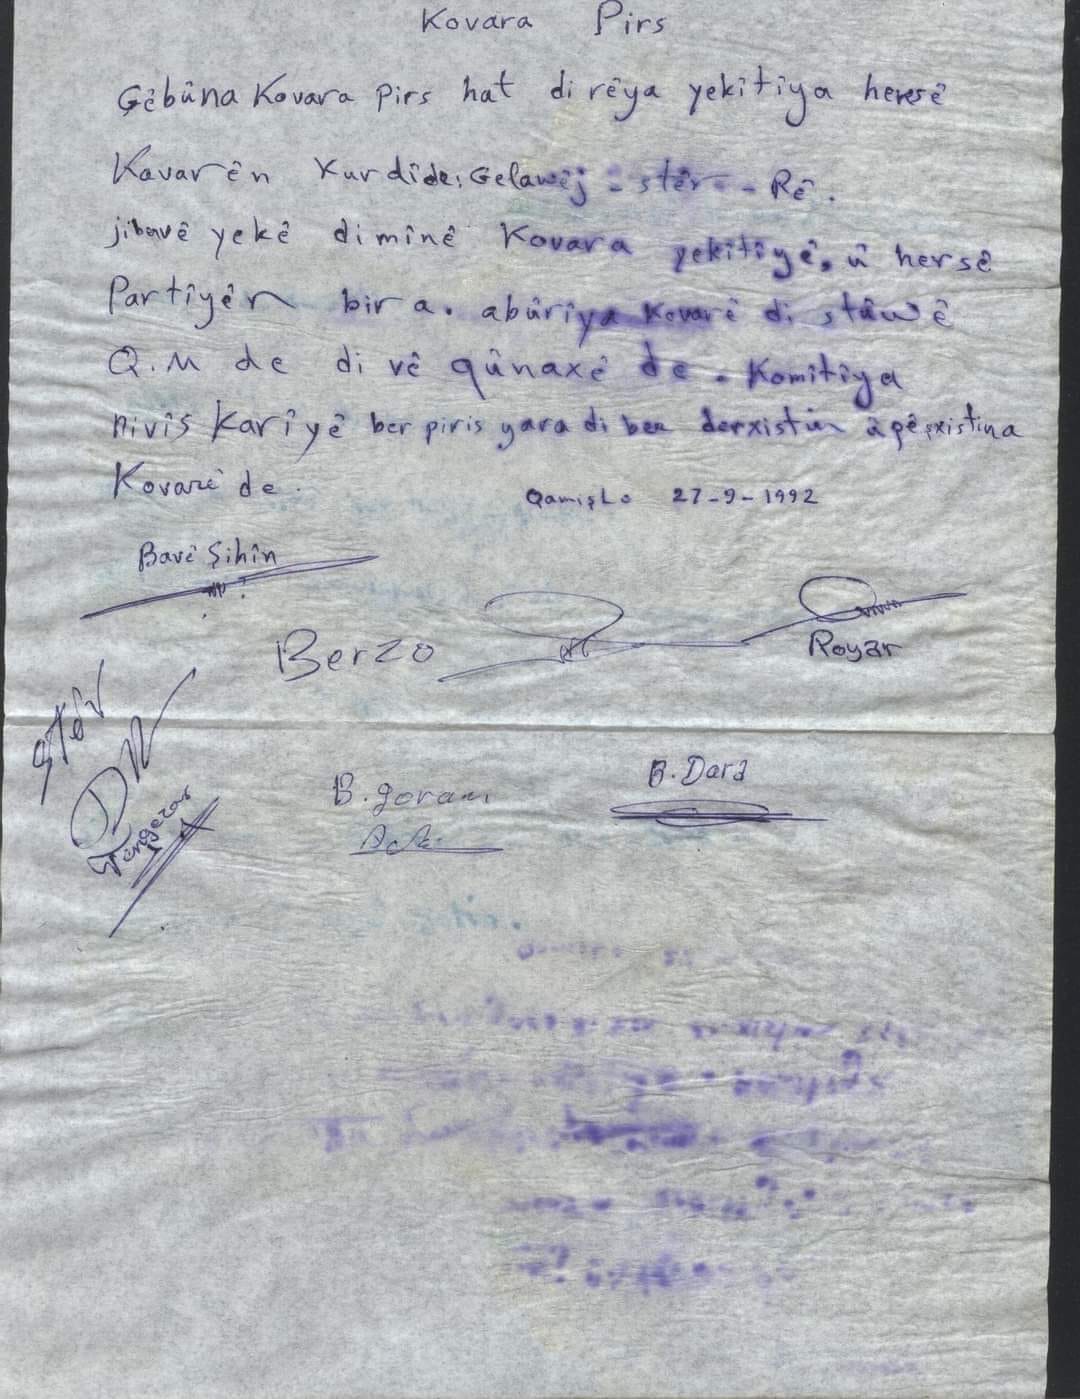 Kovara Pirs
Gêbûna Kovara Pirs hat di rêya yekîtiya hersê
Kovarên Kurdîde: Gelawêj - stêr - Rê.
jibavê yekê dimînê Kovara yekîtiyê, û hersê
Partîyên bira. abûrîya Kovarê di stûwê
Q.M de di vê qûnaxê de. Komîtîya
nivîs karîyê ber piris yara di ber derxistin û pêşxistina
Kovarê de.
Qamişlo 27-9-1992
Bavê Şihîn
Berzo
Royar
stêr
B. goran
B. Dara